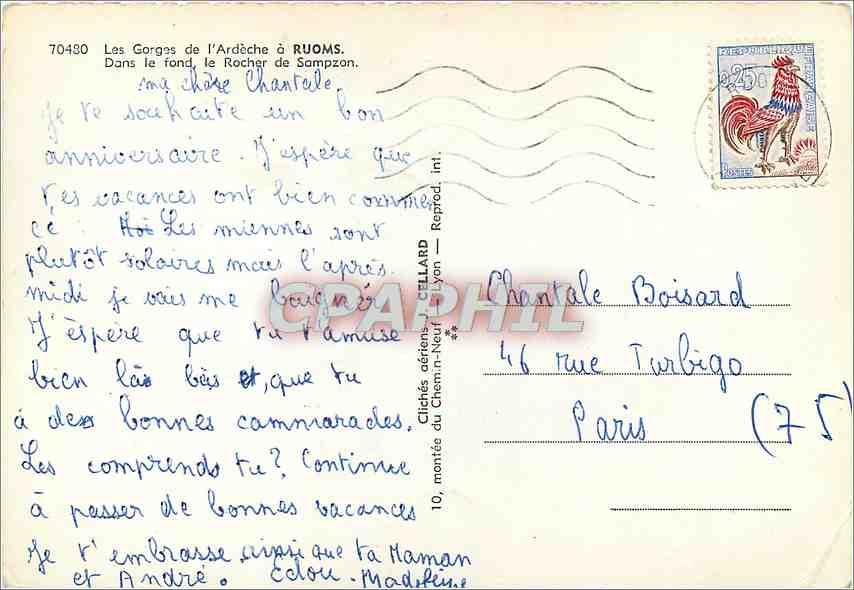 70480 Les Gorges de l'Ardèche à RUOMS.
Dans le fond, le Rocher de Sampzon.
ma chère Chantale.
Je te souhaite un bon
anniversaire. J'espère que
tes vacances ont bien commen
cé : Moi Les miennes sont
plutôt solaires mais l'après.
midi je vais me baigner
J'éspère que tu t'amuse
bien làs bàs et, que tu
à des bonnes cammarades.
Les comprends tu? Continue
à passer de bonnes vacances
Je t'embrasse, ainsi que ta Maman
et André. Edou. Madeleine
Clichés aériens J. CELLARD
10, montée du Chemin-Neuf - Lyon — Reprod. int.
REPUBLIQUE FRANÇAISE
0,25
POSTES
Chantale Boisard
46 rue Turbigo
Paris (75)
CPAPHIL